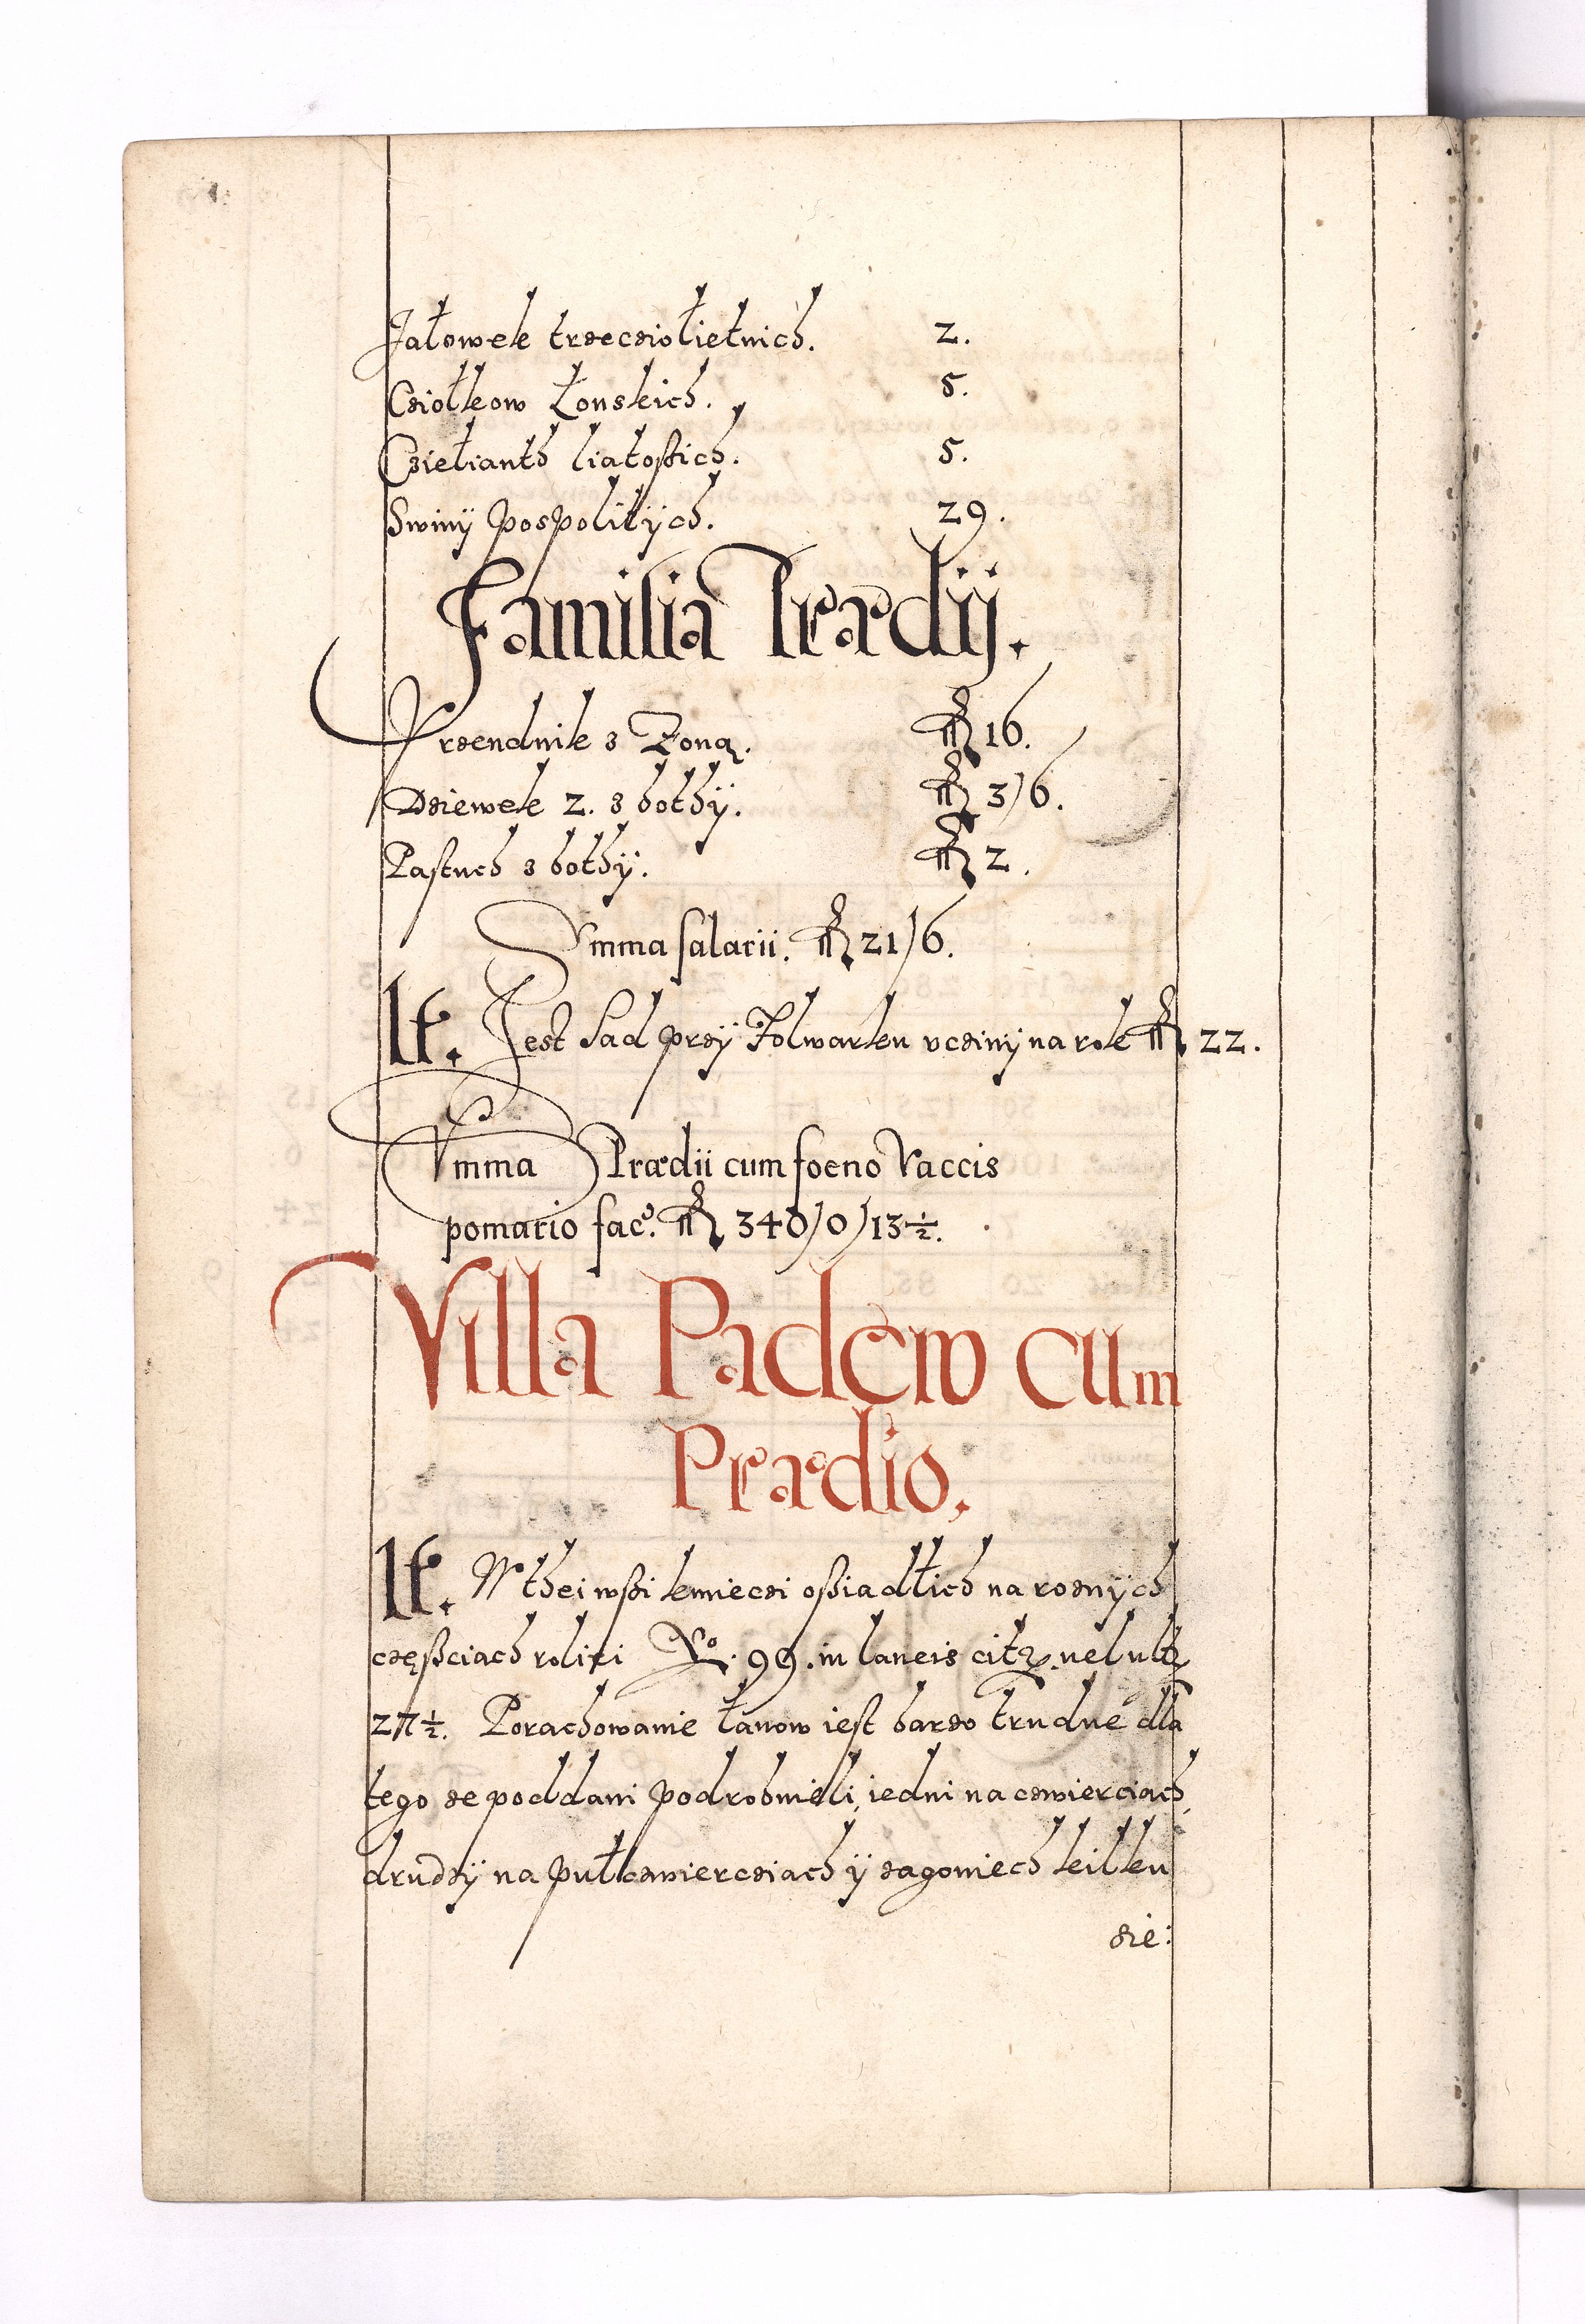 Jałowek trzecziolietnich. 2.
Cziołkow Łonskich. 5.
Czielianth liatoßich. 5.
Swinÿ pospolitÿch. 29.
Familia Prædij.
Vrzendnik z Żoną. 16.
Dziewek 2. z bothÿ. 3/6.
Pastuch z bothÿ. 2.
Summa salarii. 21/6.
It. Jest Sad przÿ Folwarku vczinÿ na rok 22.
Summa Prædii cum foeno Vaccis
pomario fac. 340/0/13½.
Villa Padew cum
Prædio.
It. W thei wßi kmieczi oßiadłich na roznÿch
częßciach roliei No. 99. in laneis citr. vel ultr
27½. Porachowanie łanow iest barzo trudne dla
tego ze poddani podrobnieli, iedni na czwierciach,
drudzÿ na pułczwiercziach ÿ zagoniech kilku
zie: